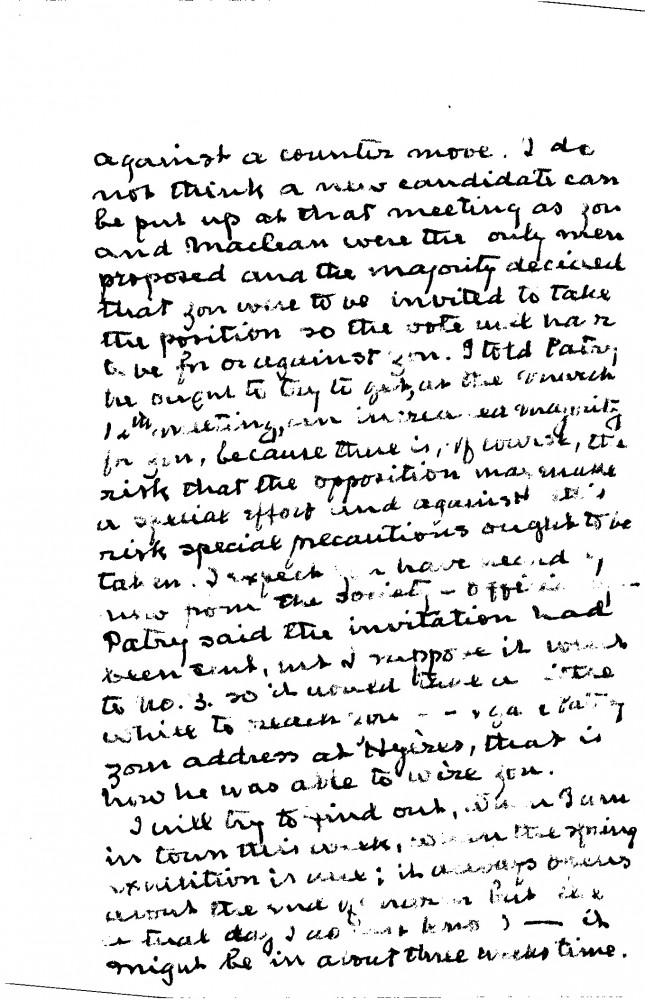 against a counter move. I do
not think a new candidate can
be put up at that meeting as you
and Maclean were the only men
proposed and the majority decided
that you were to be invited to take
the position so the vote will have
to be for or against you. I told Patry
he ought to try to get, at the March
12th meeting, an increased majority
for you, because there is, of course, the
risk that the opposition may make
a special effort and against this
risk special precautions ought to be
taken. I expect you have heard by
now from the Society - officially -
Patry said the invitation had
been sent, but I suppose it went
to No. 3. so it would take a little
while to reach you - - I gave Patry
your address at Hyères, that is
how he was able to wire you.
I will try to find out, when I am
in town this week, when the spring
exhibition is due; it always opens
about the end of March but the
day I do not know - it
might be in about three weeks time.